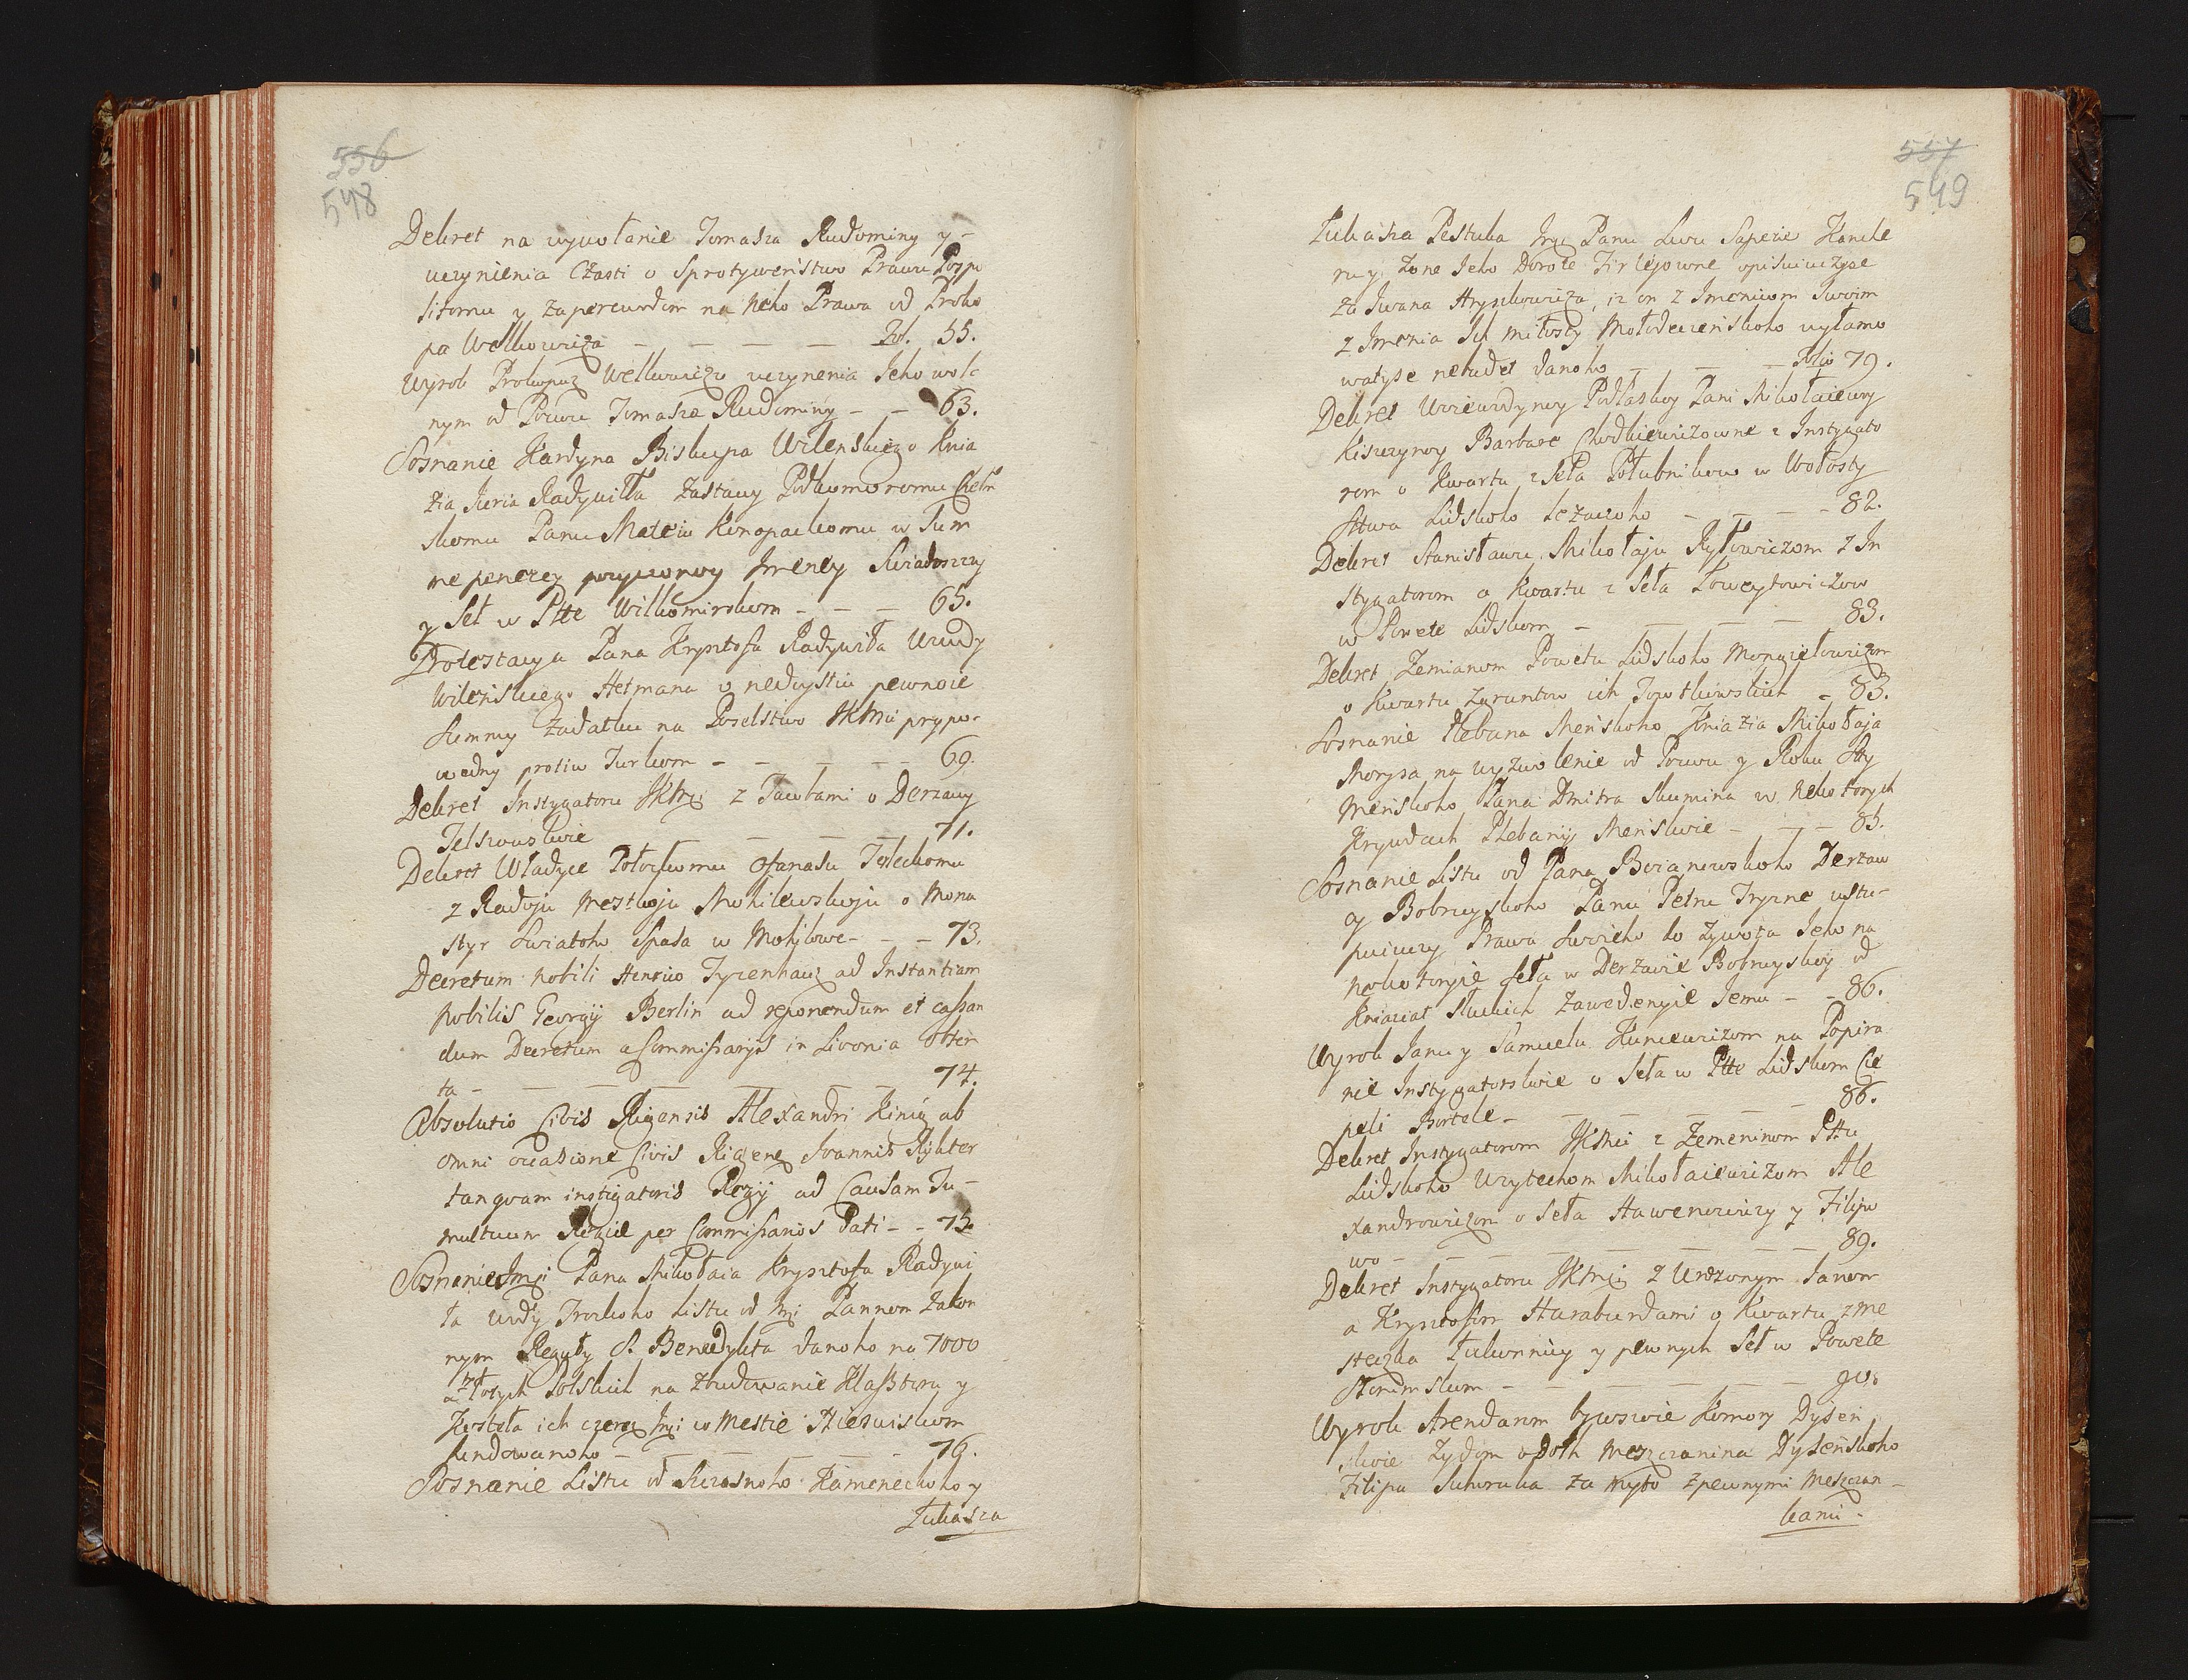 556
548
Dekret na wywołanie Tomasza Rudominy y
uczynienia Czasti o Sprotyweństwo Prawu Pospo
litomu y zaperewodom na neho Prawa od Proko
pa Wełkowiża — — — — Fol. 55.
Wyrok Prokopuz Wełkowiżu uczynenia Jeho wol
nym od Pozwu Tomasza Rudominy — — 63.
Soznanie Kardyna Biskupa Wilenskiego Knia
zia Juria Radywiłła Zastawy Podkomoromu Chełm
skomu Panu Mateiu Konopackomu w Sum
me penezey pozyczonoy Imeney Swiadoszczy
y Seł w Ptte Wiłkomirskom — — — 65.
Protestacya Pana Krysztofa Radywiła Wwdy
Wileńskiego Hetmana o nedoystiu pewnoie
Summy Zadatku na Poselstwo JKMci prypo-
wedny protiw Turkom — — — — 69.
Dekret Instygatoru JKMci z Pacołami o Derzawy
Telszowskuie — — — — 71.
Dekret Władyce Połockomu Ofanasu Terleckomu
z Radoju Mestskoju Mohilewskoju o Mona
styr Swiatoho Spasa w Mohilowe — — — 73.
Decretum Nobili Henrico Tyzenhauz ad Instantiam
Nobilis Georgij Berlin ad reponendum et cassan
dum Decretum a Commissarijs in Livonia obten
ta — — — — — — 74.
Absolutio Civis Rigensis Alexandri Kiniz ab
omni occasione Civis Rigene Ioannis Rykter
tanquam instigatoris Regij ad Causam Tu-
multuum Rigae per Commissarios Dati — — 75.
Soznanie Jmci Pana Mikołaia Krysztofa Radywi
ła Wwdy Trockoho Listu od Jmci Pannom Zakon
nym Reguły S. Benedykta danoho na 7000
złotych Polskich na Zbudowanie Klasztoru y
Kostoła ich czerez Jmci w Mestie Nieswiskom
fundowanoho — — — — 76.
Soznanie Listu od Szczasnoho Kameneckoho y
Łukasza
557
549
Łukasza Pestuka Jmci Panu Lwu Sapezie Kancle
ru y Zone Jeho Dorote Firlejowne opisuiuczyse
za Iwana Hryszkowiża, iz on z Imeniom Swoim
z Imenia Ich miłosty Mołodeczeńskoho wyłamo
watyse nebudet danoho — — — Folio 79.
Dekret Woiewodynoy Podlaskoy Pani Mikołaiewoy
Kiszczynoy Barbare Chodkiewiżowne z Instygato
rom o Kwartu z Seła Połubnikow w Wołosty
Sttwa Lidskoho Lezaczoho — — — — 82.
Dekret Stanisławu, Mikołaju Ryłowiczom z In
stygatorom o Kwartu z Seła Łoweytowiczow
w Powete Lidskom — — — — 83.
Dekret Zemianom Powetu Lidskoho Mongiełowiżom
o Kwartu z gruntow ich Jowtkowskich — 83.
Soznanie Plebana Meńskoho Kniazia Mikołaja
Morysa na wyzwolenie od Pozwu y Roku Stty
Menskoho Pana Dmitra Skumina w nekotorych
Krywdach Plebanij Meńskuie — — — 85.
Soznanie Listu od Pana Boianowskoho Derzaw
cy Bobruyskoho Panu Petru Tryzne ustu-
puiuczy Prawa Swoieho do Zywota Jeho na
nekotoryie seła w Derzawie Bobruyskoy od
Kniaziat Słuckich zawedenyie Jemu — — 86.
Wyrok Janu y Samuelu Kuncewiżom na Popira
nie Instygatorskuie o Seła w Ptte Lidskom Cie
peli Bortele — — — — — 86.
Dekret Instygatorom JKMci z Zemeninom Pttu
Lidskoho Woytechom Mikołaiewiżom Ale
xandrowiżom o Seła Hawenowiży y Filipo
wo — — — — — — 89.
Dekret Instygatoru JKMci z Urożonym Janom
a Krysztofom Haraburdami o Kwartu z me
steczka Łukonnicy y pewnych Seł w Powete
Słonimskom — — — — — 90.
Wyrok Arendarom bywszuie Komory Dyseń
skuie Zydom o dołh Meszczanina Dysenskoho
Filipa Suhoruka za myto z pewnymi Meszczan-
kami.